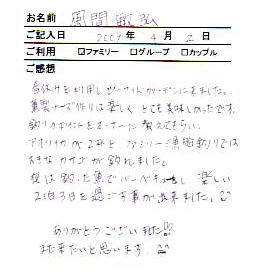 お名前 風間 敏弘
ご記入日 2009 年 4 月 2 日
ご利用 ☑ファミリー □グループ □カップル
ご感想
春休みを利用し ツーサイドガーデンに来ました。
燻製チーズ作りは楽しく とても美味しかったです。
釣りのポイントをオーナーに 教えてもらい、
アオリイカが2杯と ファミリー 釣りでは
大きな カサゴ が釣れました。
夜は釣った魚でバーベキューし 楽しい
2泊3日を過ごす事が出来ました。
ありがとうございました!!
また来たいと思います。